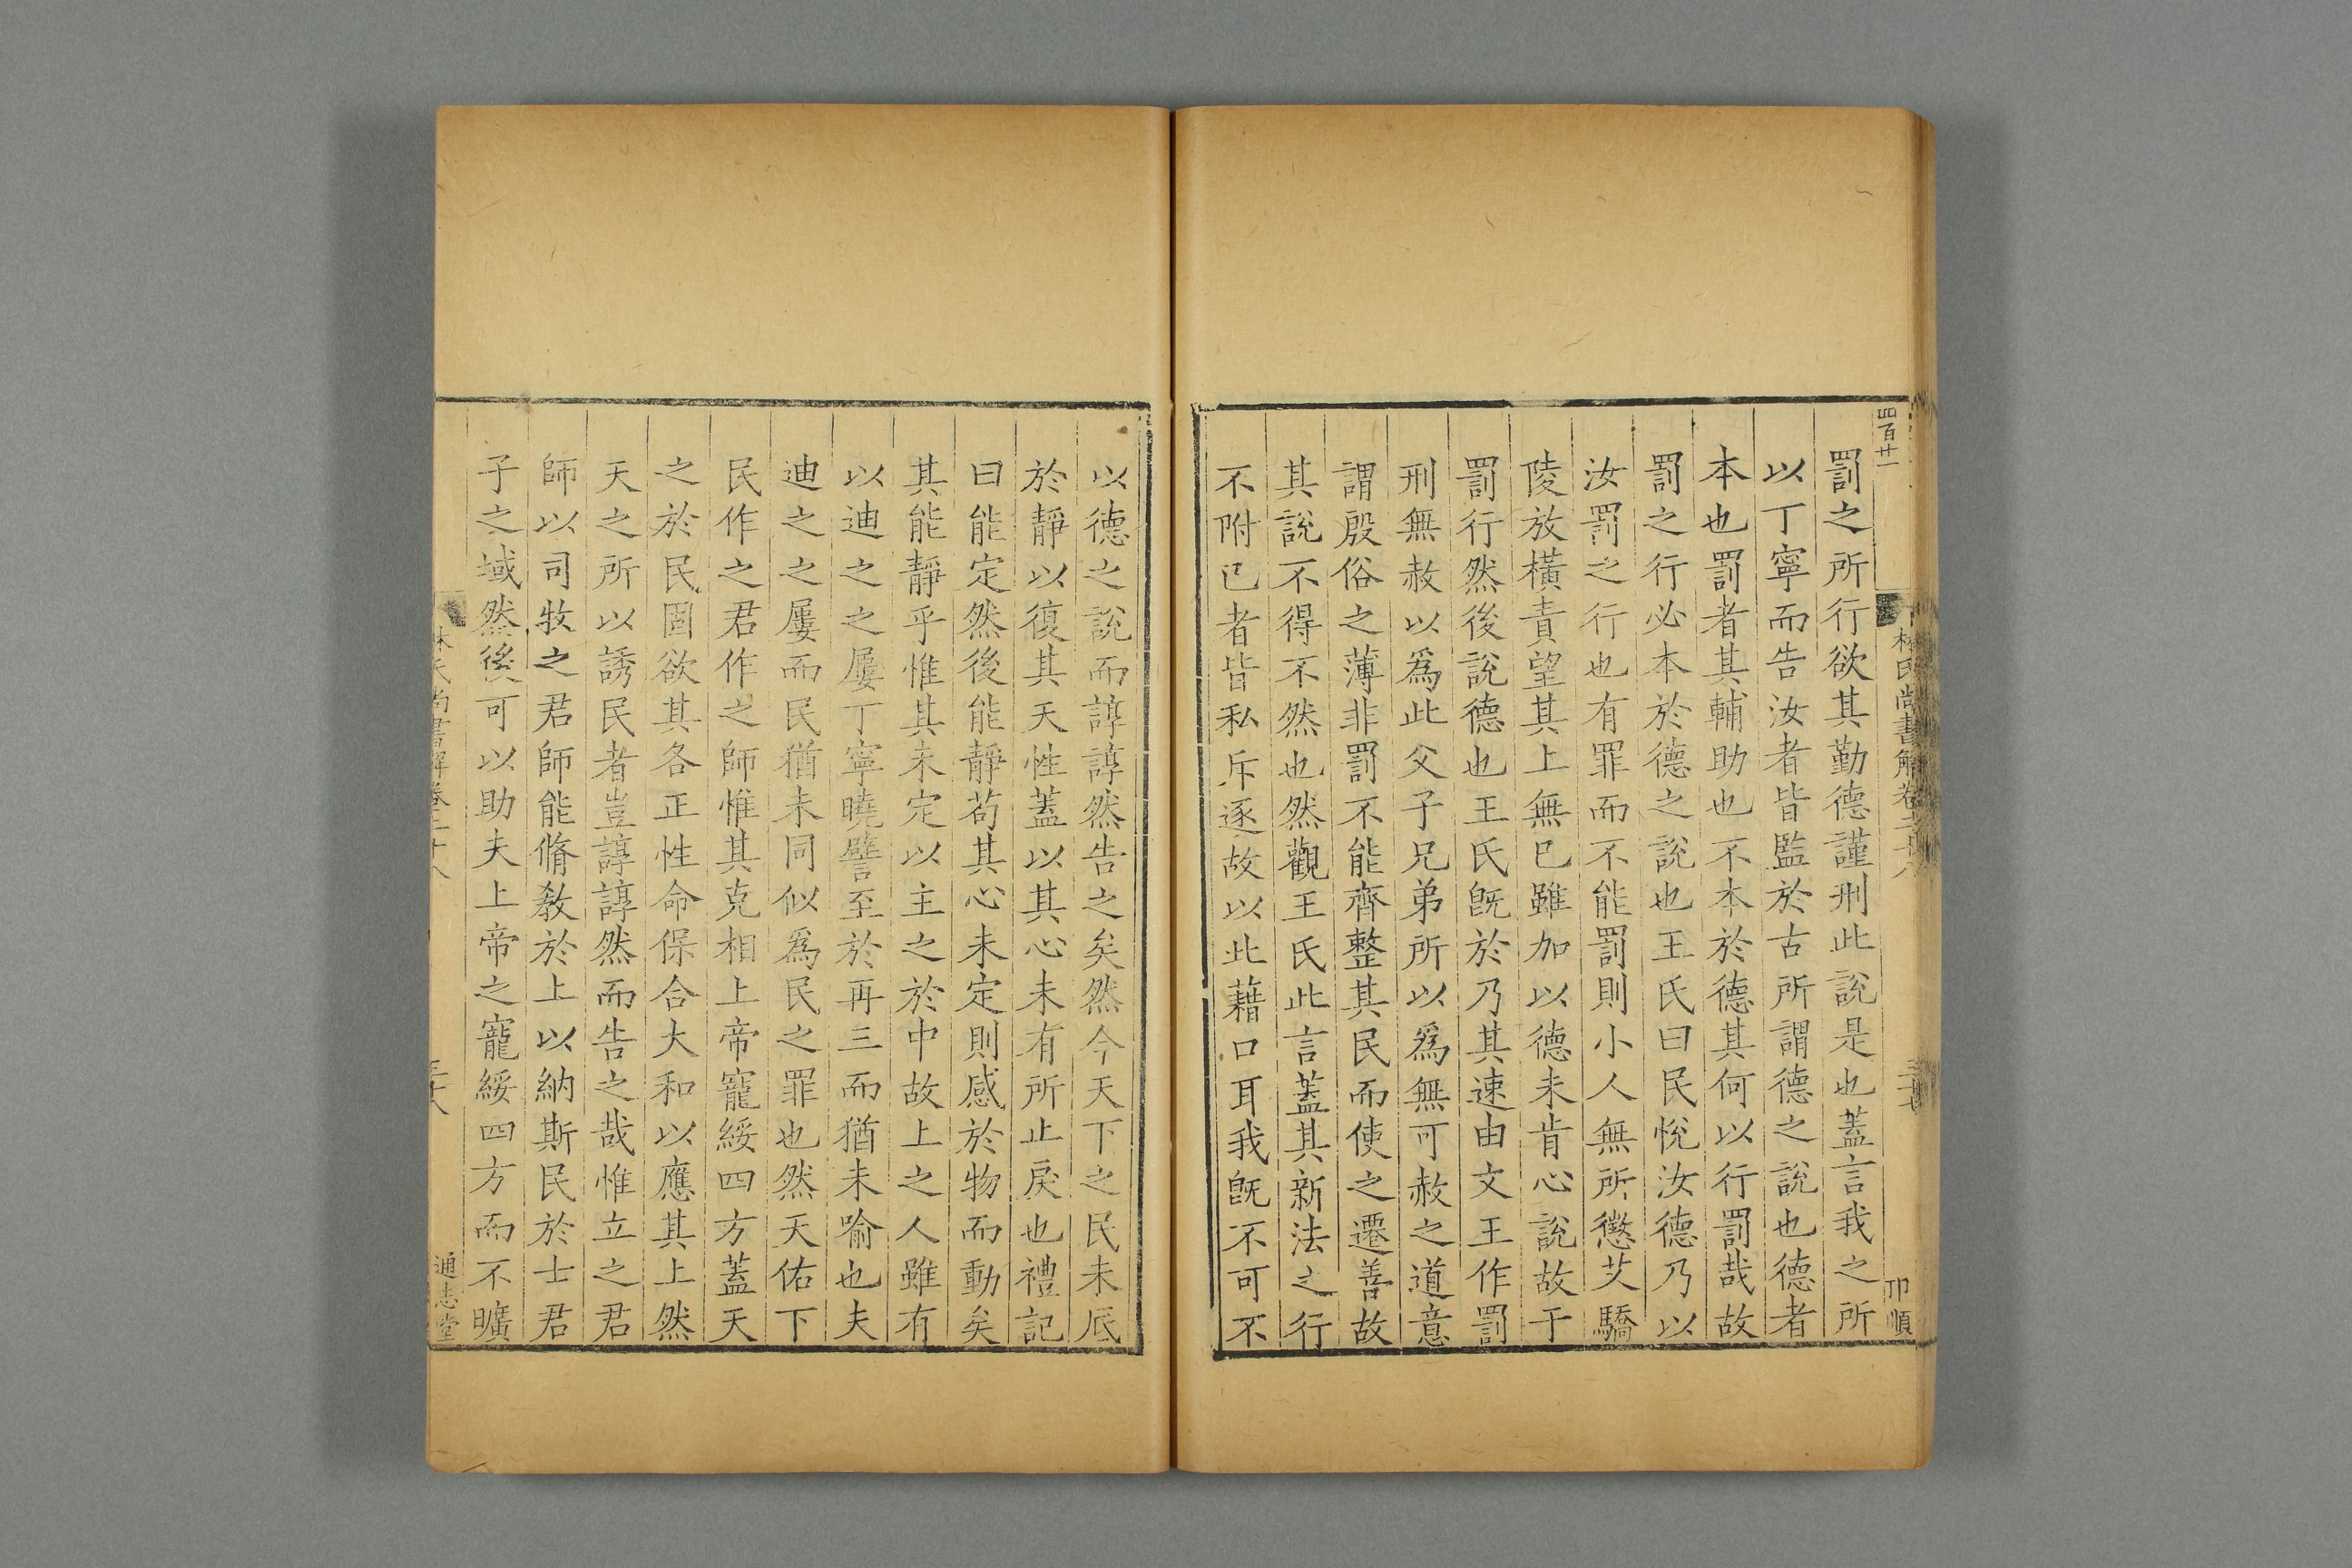 四百廿一
林氏尚書解卷二十八
三十七
卭順
罰之所行欲其勤德謹刑此說是也蓋言我之所
以丁寧而告汝者皆監於古所謂德之說也德者
本也罰者其輔助也不本於德其何以行罰哉故
罰之行必本於德之說也王氏曰民悅汝德乃以
汝罰之行也有罪而不能罰則小人無所懲艾驕
陵放橫責望其上無已雖加以德未肯心說故于
罰行然後說德也王氏旣於乃其速由文王作罰
刑無赦以爲此父子兄弟所以爲無可赦之道意
謂殷俗之薄非罰不能齊整其民而使之遷善故
其說不得不然也然觀王氏此言蓋其新法之行
不附己者皆私斥逐故以此藉口耳我旣不可不
以德之說而諄諄然告之矣然今天下之民未厎
於靜以復其天性蓋以其心未有所止戾也禮記
曰能定然後能靜苟其心未定則感於物而動矣
其能靜乎惟其未定以主之於中故上之人雖有
以迪之之屢丁寧曉譬至於再三而猶未喻也夫
迪之之屢而民猶未同似爲民之罪也然天佑下
民作之君作之師惟其克相上帝寵綏四方蓋天
之於民固欲其各正性命保合大和以應其上然
天之所以誘民者豈諄諄然而告之哉惟立之君
師以司牧之君師能脩敎於上以納斯民於士君
子之域然後可以助夫上帝之寵綏四方而不曠
林氏尚書解卷二十八
三十八
通志堂